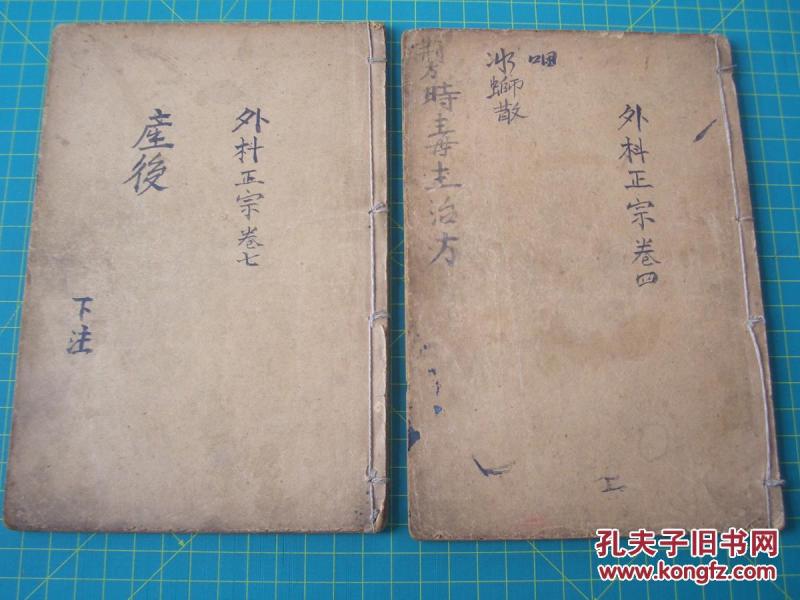 外科正宗卷七
産後
下注
外科正宗卷四
咽
冰螄散
時毒主治方
孔夫子旧书网
www.kongfz.com